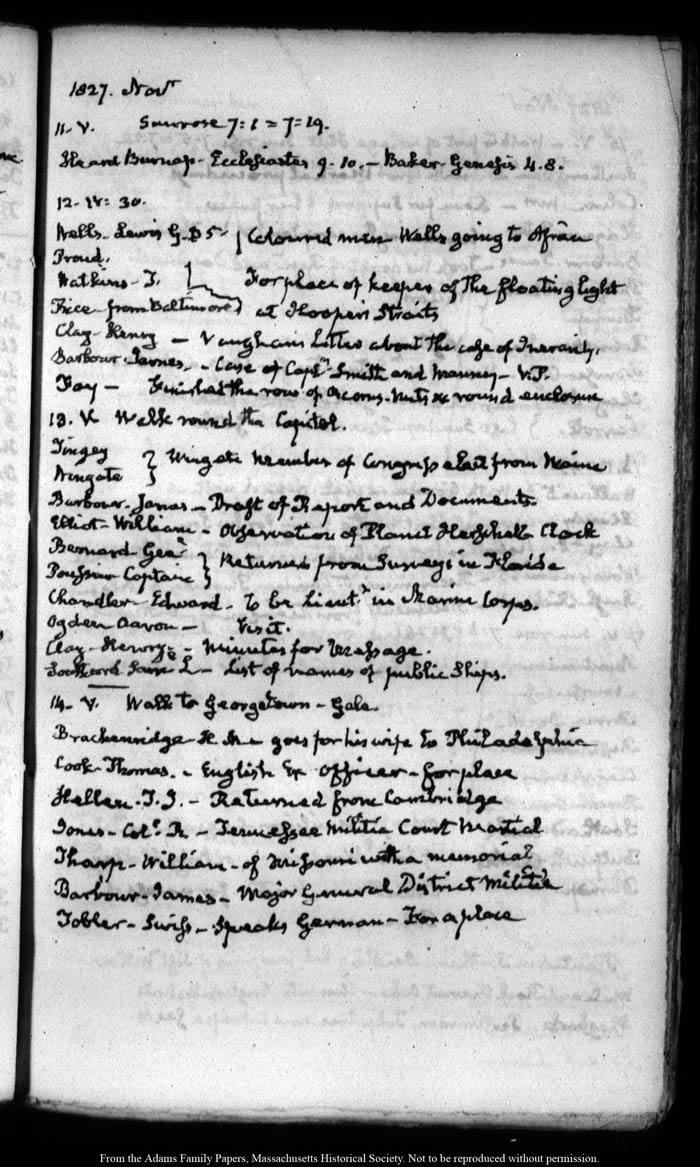 1827. Novr
11. V. Sunrose 7:1 = 7:19.
Heard Burnap. Ecclesiastes 9.10. – Baker. Genesis 4.8.
12. IV: 30.
Wells. Lewis G. Coloured men Wells going to Africa
Proud.
Watkins. T. For place of keeper of the floating light
Price from Baltimore at Hooper's Straits
Clay. Henry – Vaughan's Letter about the case of
Barbour. James. – Case of Captn Smith and V.P.
Fay – Finished the row of Acorns. Nuts &c round enclosure
13. V. Walk round the Capitol.
Tingey
Wingate } Wingate Member of Congress elect from Maine
Barbour. James – Draft of Report and Documents.
Elliot. William – Observation of Planet Herschell. Clock
Bernard Genl
Poussin Captain } Returned from Surveys in Florida
Chandler. Edward. To be Lieutt in Marine Corps.
Ogden Aaron – Visit.
Clay. Henry – Minutes for Message.
Southard Saml L – List of names of public Ships.
14. V. Walk to Georgetown – Gale
Brackenridge. H. M. goes for his wife to Philadelphia
Cook. Thomas. – English Ex Officer – for place
Hellen. T. J. – Returned from Cambridge
Jones – Coll. R – Tennessee Militia Court Martial
Tharp – William – of Missouri with a memorial
Barbour. James – Major General District Militia
Tobler – Swiss – Speaks German – For a place
From the Adams Family Papers, Massachusetts Historical Society. Not to be reproduced without permission.